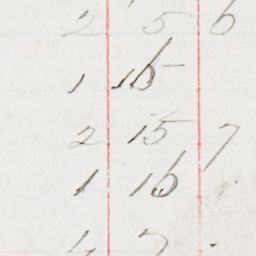 2 5 6
1 15
2 15 7
1 16
4 7 .